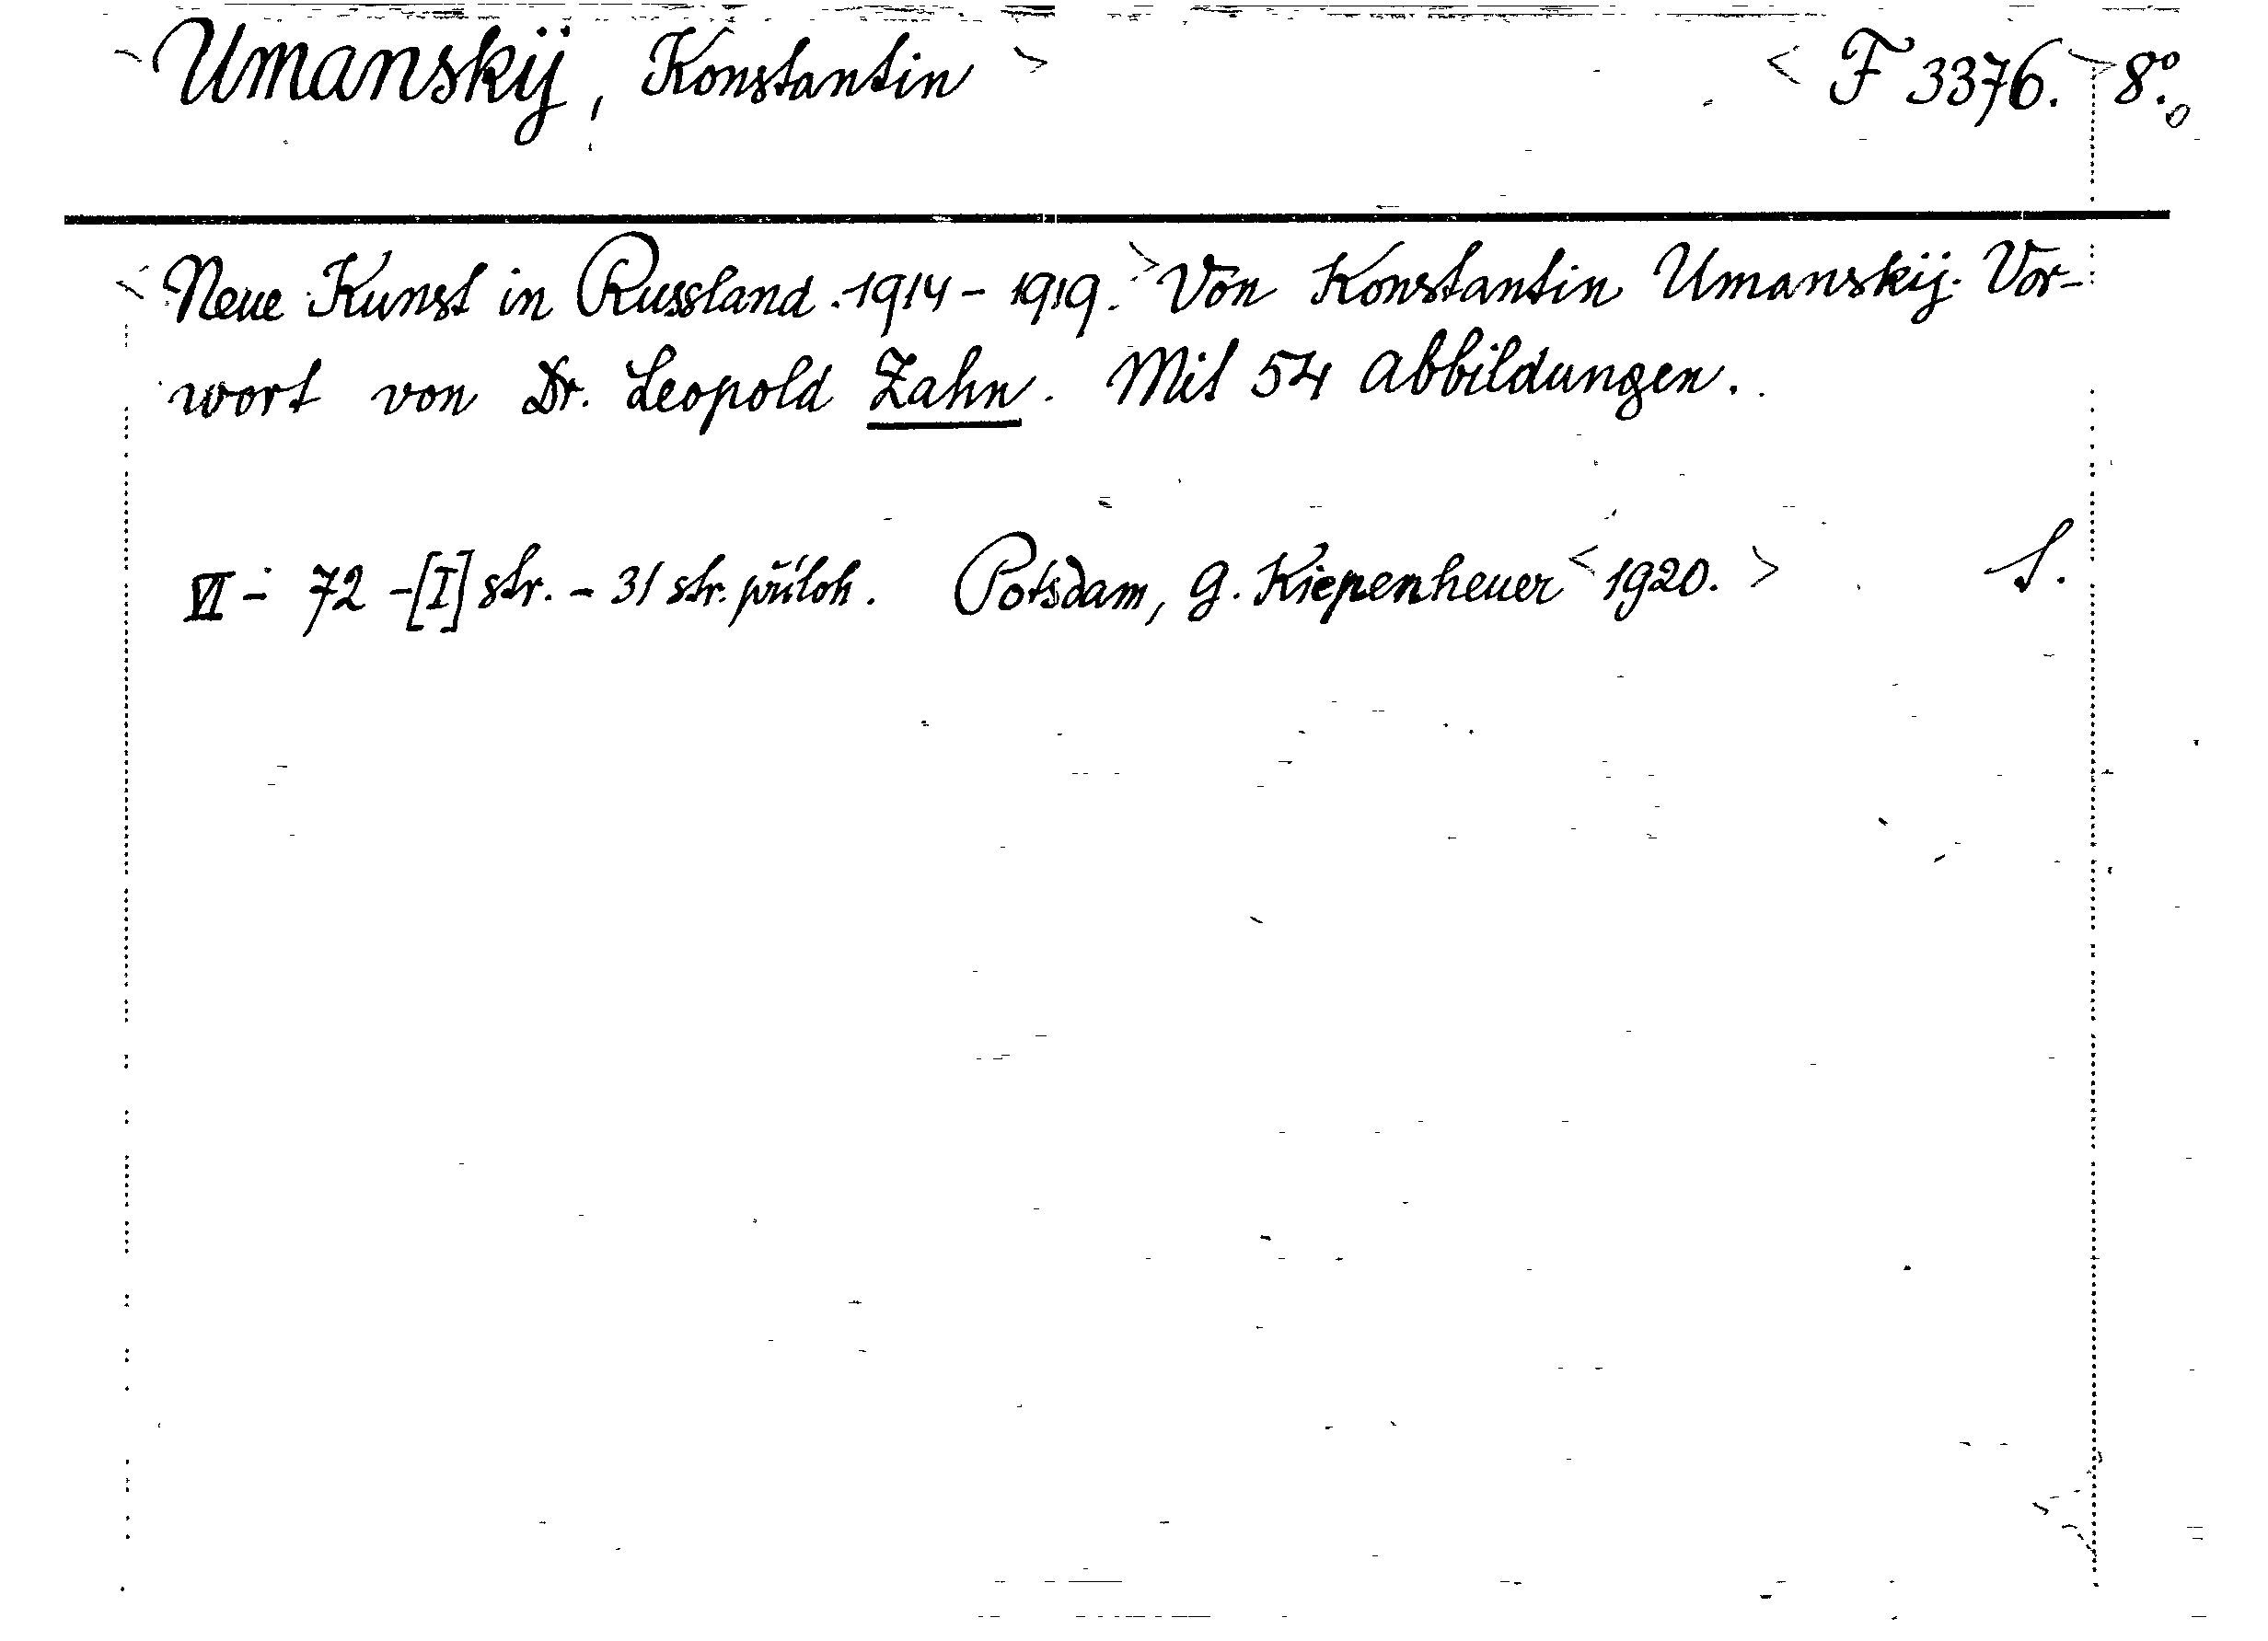 Umanskij, Konstantin < F 3376. > 8°.
< Neue Kunst in Russland. 1914 - 1919. > Von Konstantin Umanskij. Vor-
wort von Dr. Leopold Zahn. Mit 54 Abbildungen.
VI - 72 - [I] str. - 31 str. příloh. Potsdam, G. Kiepenheuer < 1920. > S.